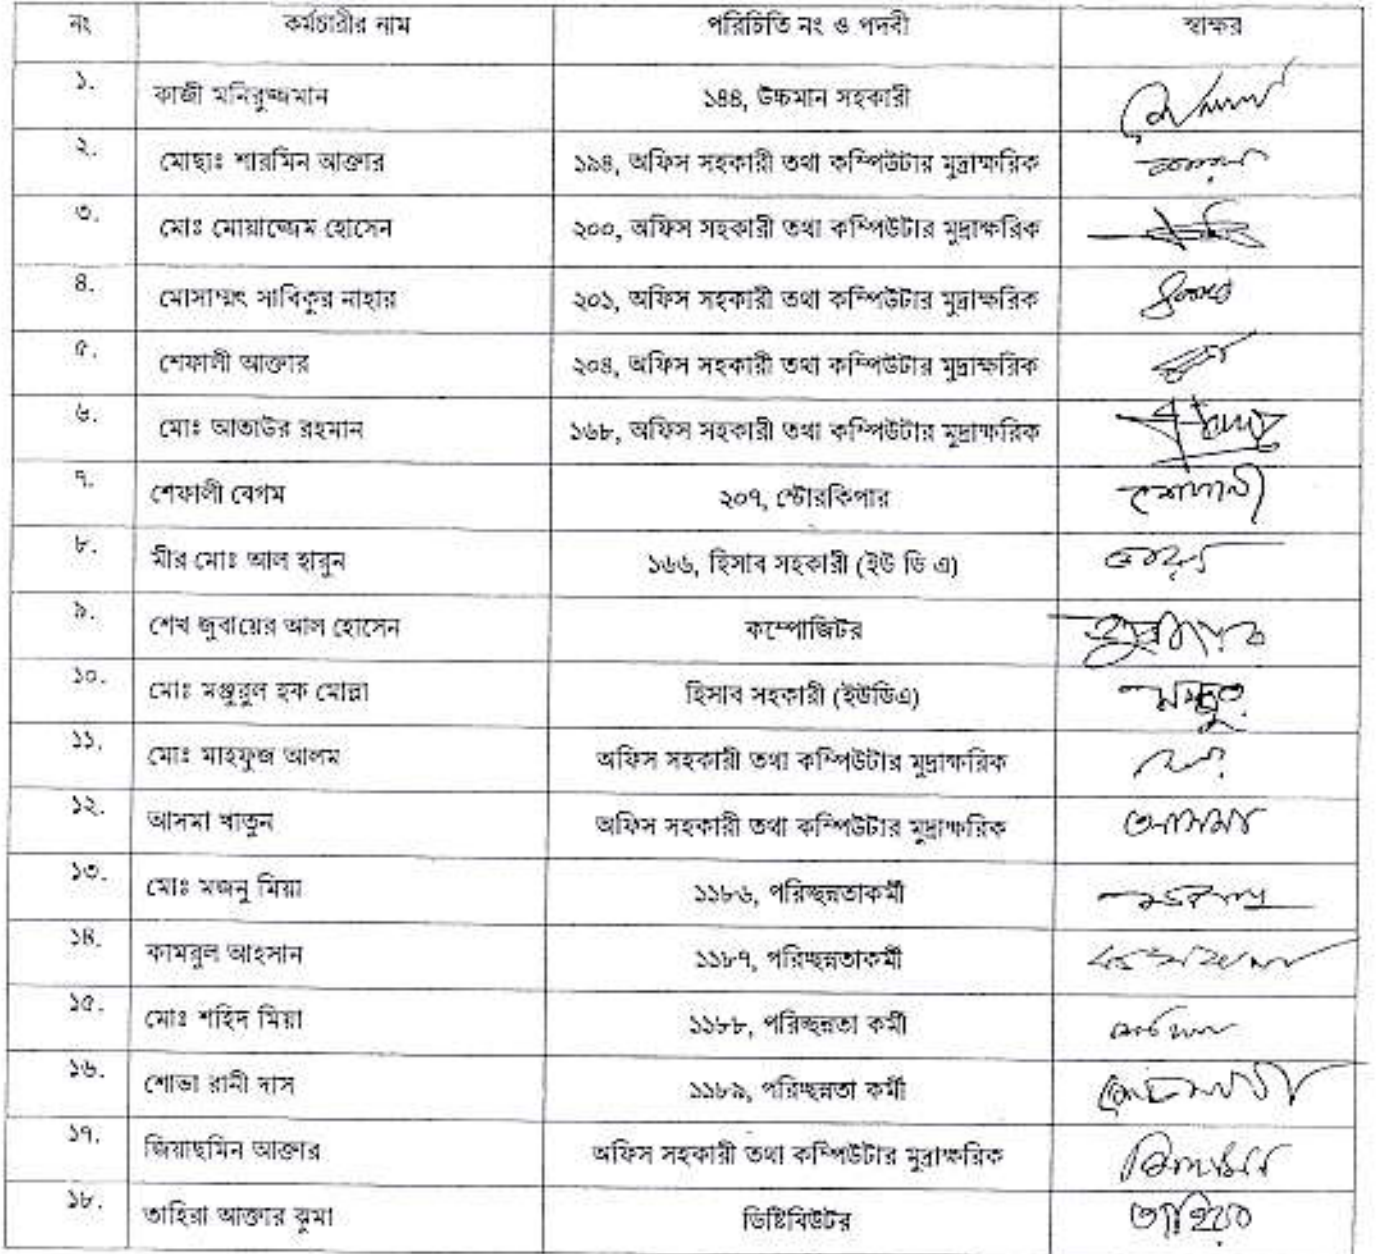 নং কর্মচারীর নাম পরিচিতি নং ও পদবী স্বাক্ষর
১. কাজী মনিরুজ্জমান ১৪৪, উচ্চমান সহকারী
২. মোছাঃ শারমিন আক্তার ১৯৪, অফিস সহকারী তথা কম্পিউটার মুদ্রাক্ষরিক
৩. মোঃ মোয়াজ্জেম হোসেন ২০০, অফিস সহকারী তথা কম্পিউটার মুদ্রাক্ষরিক
৪. মোসাম্মৎ সাবিকুর নাহার ২০১, অফিস সহকারী তথা কম্পিউটার মুদ্রাক্ষরিক
৫. শেফালী আক্তার ২০৪, অফিস সহকারী তথা কম্পিউটার মুদ্রাক্ষরিক
৬. মোঃ আতাউর রহমান ১৬৮, অফিস সহকারী তথা কম্পিউটার মুদ্রাক্ষরিক
৭. শেফালী বেগম ২০৭, স্টোরকিপার শেফালী
৮. মীর মোঃ আল হারুন ১৬৬, হিসাব সহকারী (ইউ ডি এ)
৯. শেখ জুবায়ের আল হোসেন কম্পোজিটর
১০. মোঃ মঞ্জুরুল হক মোল্লা হিসাব সহকারী (ইউডিএ)
১১. মোঃ মাহফুজ আলম অফিস সহকারী তথা কম্পিউটার মুদ্রাক্ষরিক
১২. আসমা খাতুন অফিস সহকারী তথা কম্পিউটার মুদ্রাক্ষরিক আসমা
১৩. মোঃ মজনু মিয়া ১১৮৬, পরিচ্ছন্নতাকর্মী
১৪. কামরুল আহসান ১১৮৭, পরিচ্ছন্নতাকর্মী
১৫. মোঃ শহিদ মিয়া ১১৮৮, পরিচ্ছন্নতা কর্মী
১৬. শোভা রানী দাস ১১৮৯, পরিচ্ছন্নতা কর্মী
১৭. জিয়াছমিন আক্তার অফিস সহকারী তথা কম্পিউটার মুদ্রাক্ষরিক
১৮. তাহিরা আক্তার ঝুমা ডিষ্টিবিউটর তাহিরা